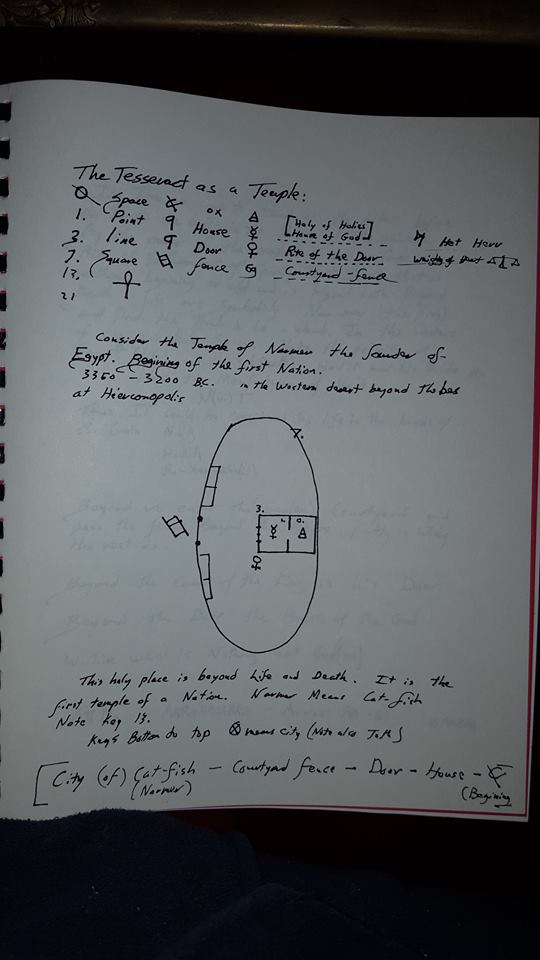 The Tesseract as a Temple:
Space ox [Holy of Holies]
1. Point House House of God] Het Heru
3. line Door Rite of the Door weight of
7. Square fence Courtyard-fence
13.
21
Consider the Temple of Narmer the founder of
Egypt. Begining of the first Nation.
3350 - 3200 BC. in the Western desert beyond Thebes
at Hierconopolis
7.
3. 1. 0.
This holy place is beyond Life and Death. It is the
first temple of a Nation. Narmer Means Cat-fish
Note Key 13.
Keys Bottom to top means city (Note also
[City (of) Cat-fish - Courtyard fence - Door - House -
(Narmer) (Begining